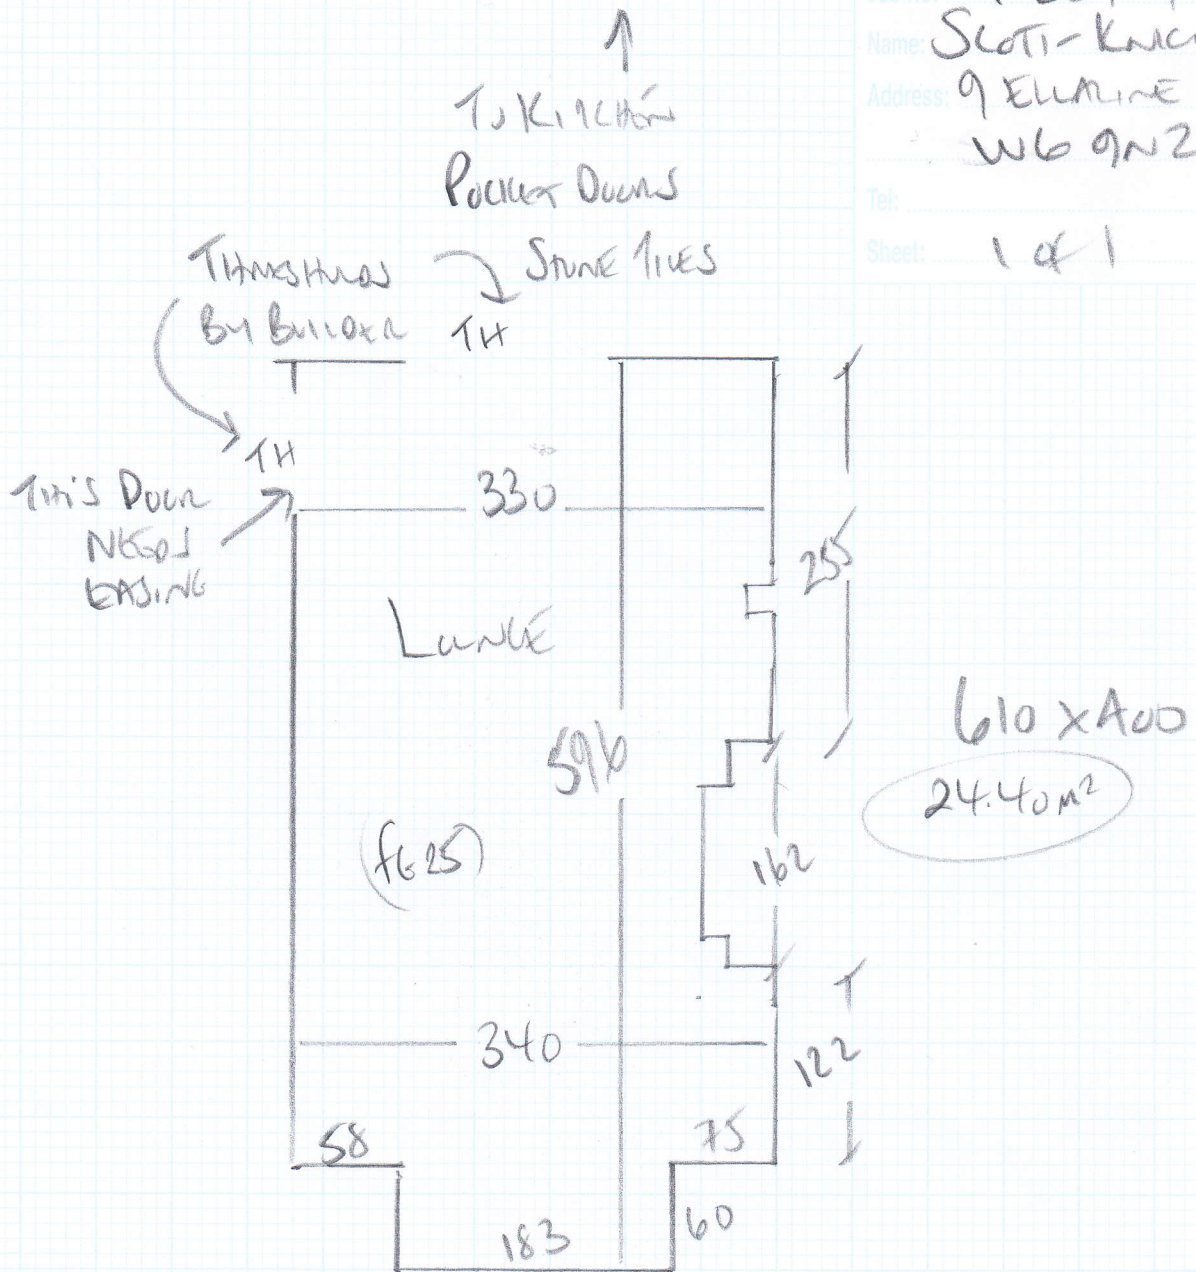 Name: SCOTT-KNIG
Address: 9 ELLALINE
W6 9NZ
Tel:
Sheet: 1 of 1
TO KITCHEN
POCKET DOORS
THRESHOLDS
BY BUILDER
STONE TILES
TH
TH
THIS DOOR
NEEDS
EASING
330
255
LOUNGE
596
610 x 400
24.40m²
162
340
122
58
75
183
60